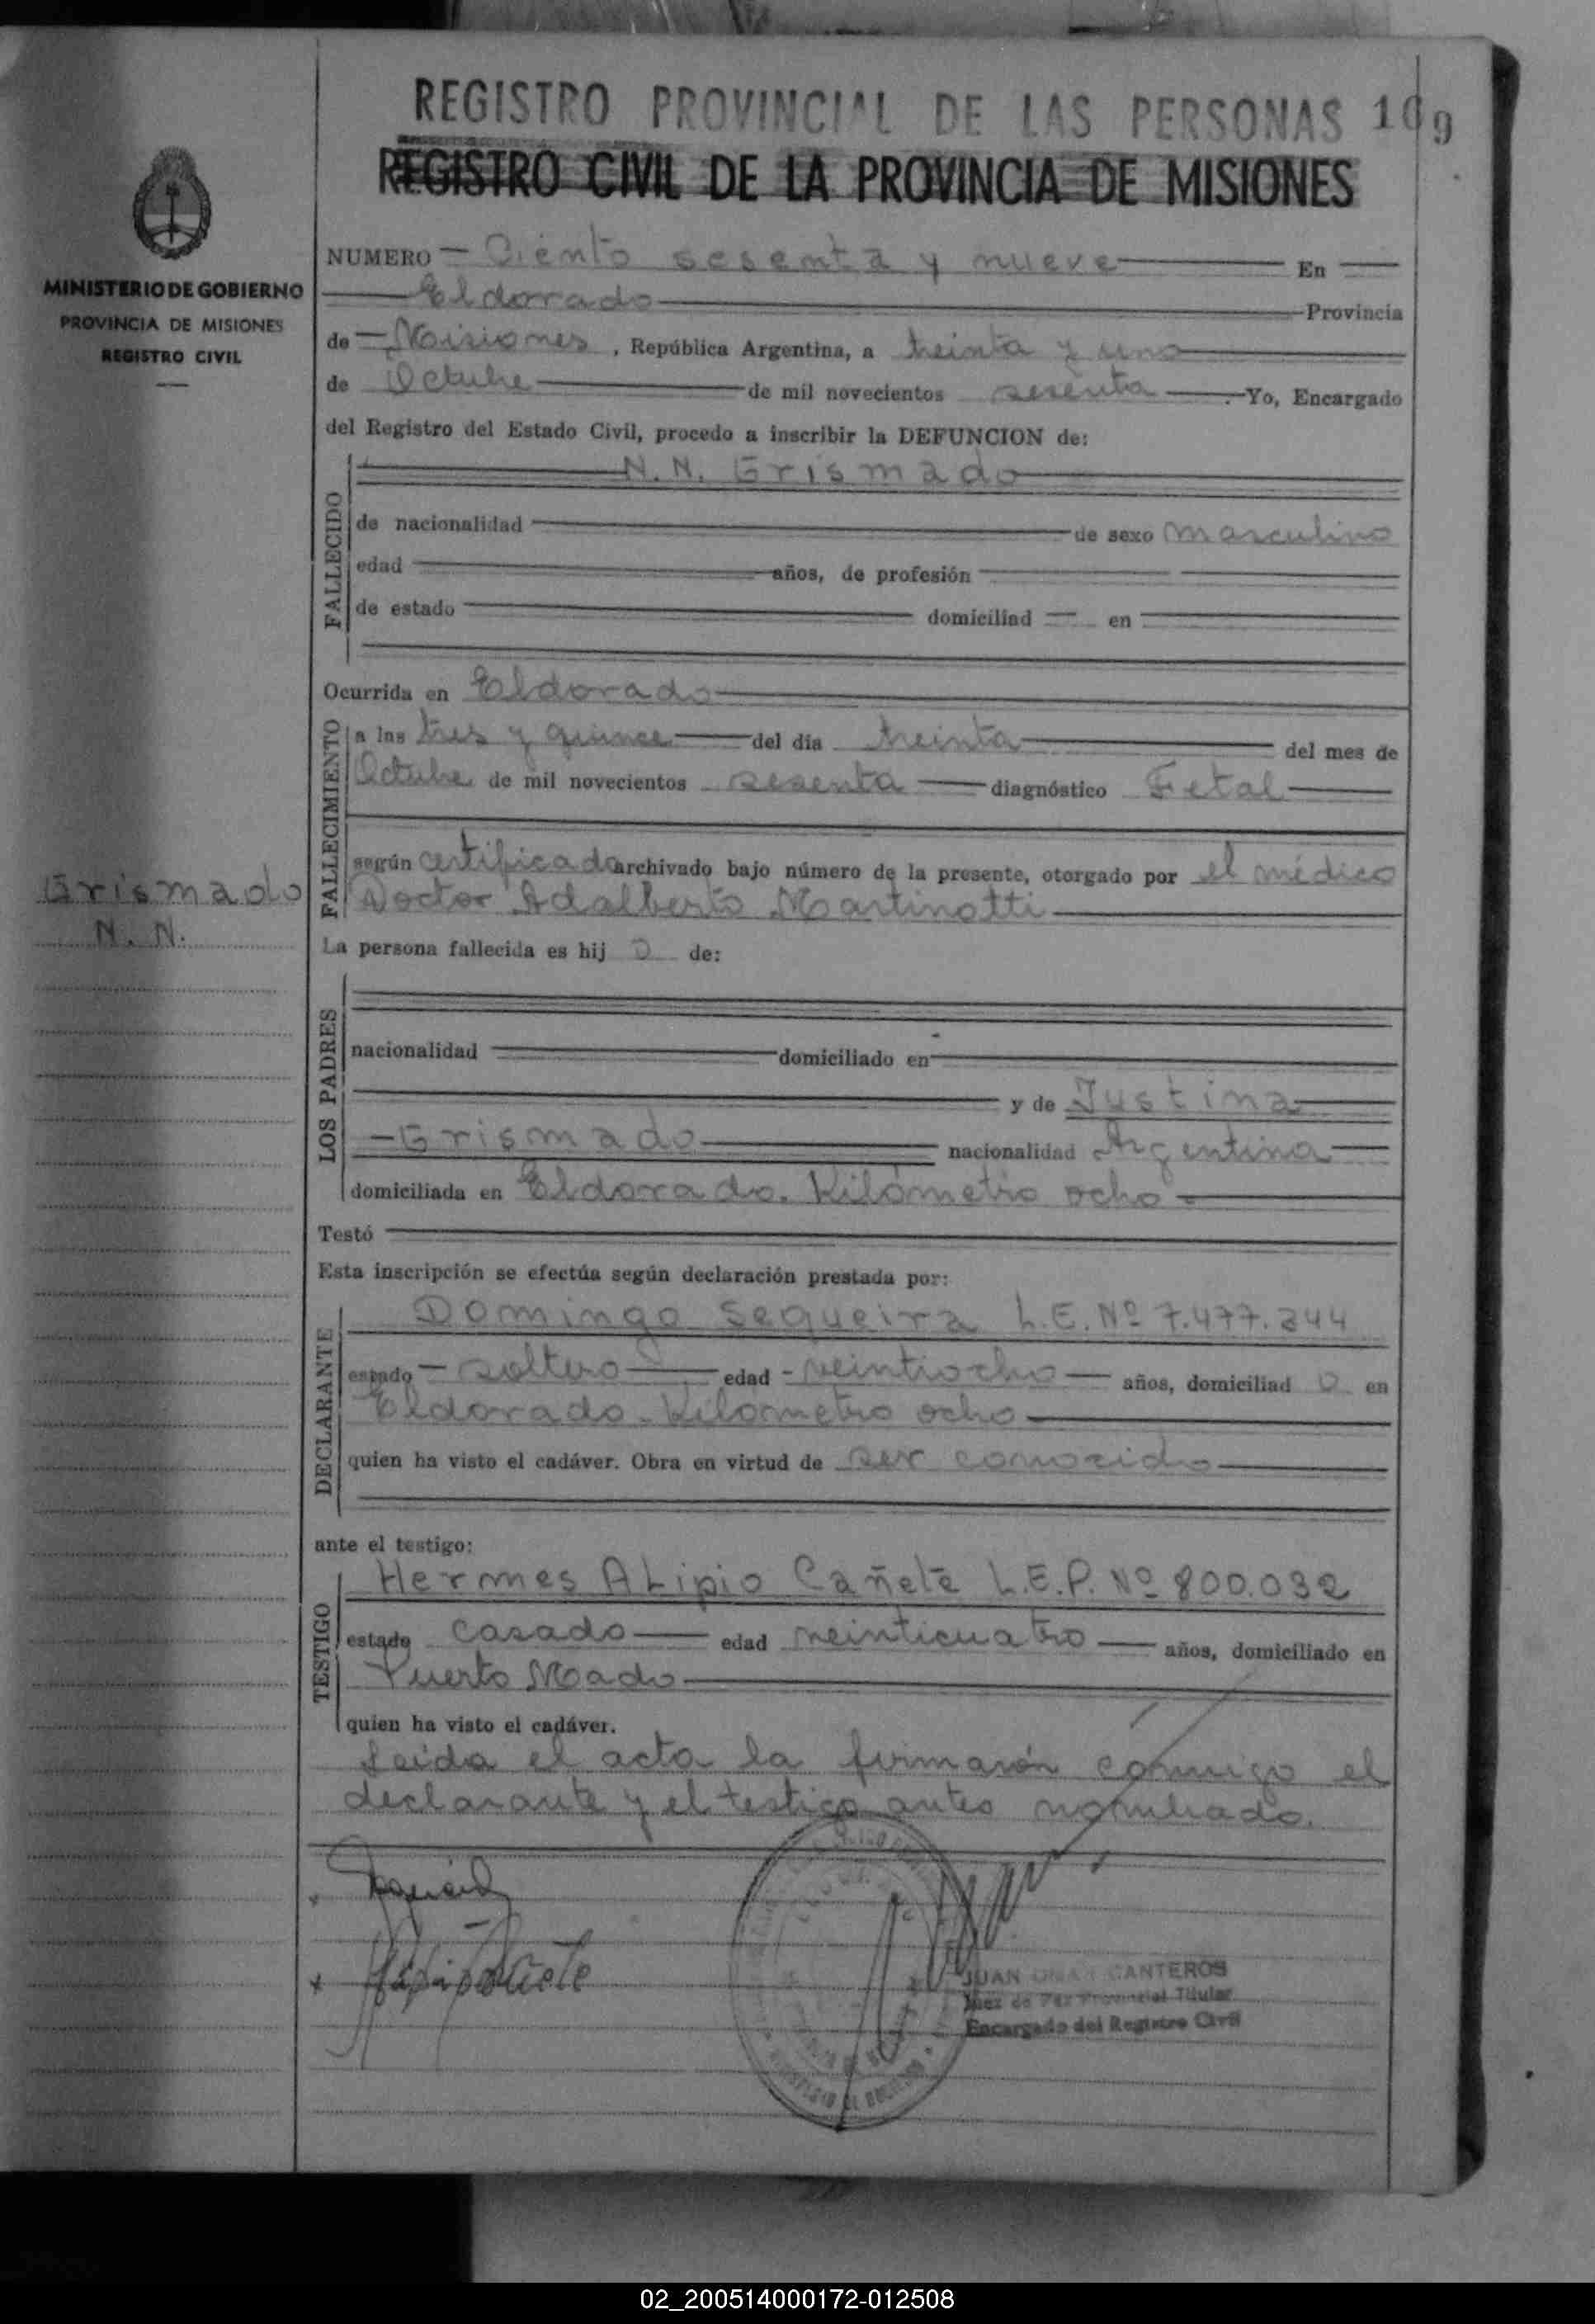 REGISTRO PROVINCIAL DE LAS PERSONAS 169
REGISTRO CIVIL DE LA PROVINCIA DE MISIONES
MINISTERIO DE GOBIERNO
PROVINCIA DE MISIONES
REGISTRO CIVIL
NUMERO Ciento sesenta y nueve En
Eldorado Provincia
de Misiones, República Argentina, a treinta y uno
de Octubre de mil novecientos sesenta. Yo, Encargado
del Registro del Estado Civil, procedo a inscribir la DEFUNCION de:
FALLECIDO
N. N. Grismado
de nacionalidad de sexo masculino
edad años, de profesión
de estado domiciliad en
Ocurrida en Eldorado
FALLECIMIENTO
a las tres y quince del día treinta del mes de
Octubre de mil novecientos sesenta diagnóstico Fetal
según certificado archivado bajo número de la presente, otorgado por el médico
Doctor Adalberto Martinotti
Grismado
N. N.
La persona fallecida es hij o de:
LOS PADRES
nacionalidad domiciliado en
y de Justina
Grismado nacionalidad Argentina
domiciliada en Eldorado. Kilómetro ocho
Testó
Esta inscripción se efectúa según declaración prestada por:
DECLARANTE
Domingo Sequeira L.E. Nº 7.477.344
estado soltero edad veintiocho años, domiciliad o en
Eldorado - Kilometro ocho
quien ha visto el cadáver. Obra en virtud de ser conocido
ante el testigo:
TESTIGO
Hermes ALipio Cañete L.E.P. Nº 800.032
estado casado edad veinticuatro años, domiciliado en
Puerto Mado
quien ha visto el cadáver.
Leida el acta la firmarón conmigo el
declarante y el testigo antes nombrado.
JUAN CANTEROS
Juez de Paz Provincial Titular
Encargado del Registro Civil
02_200514000172-012508